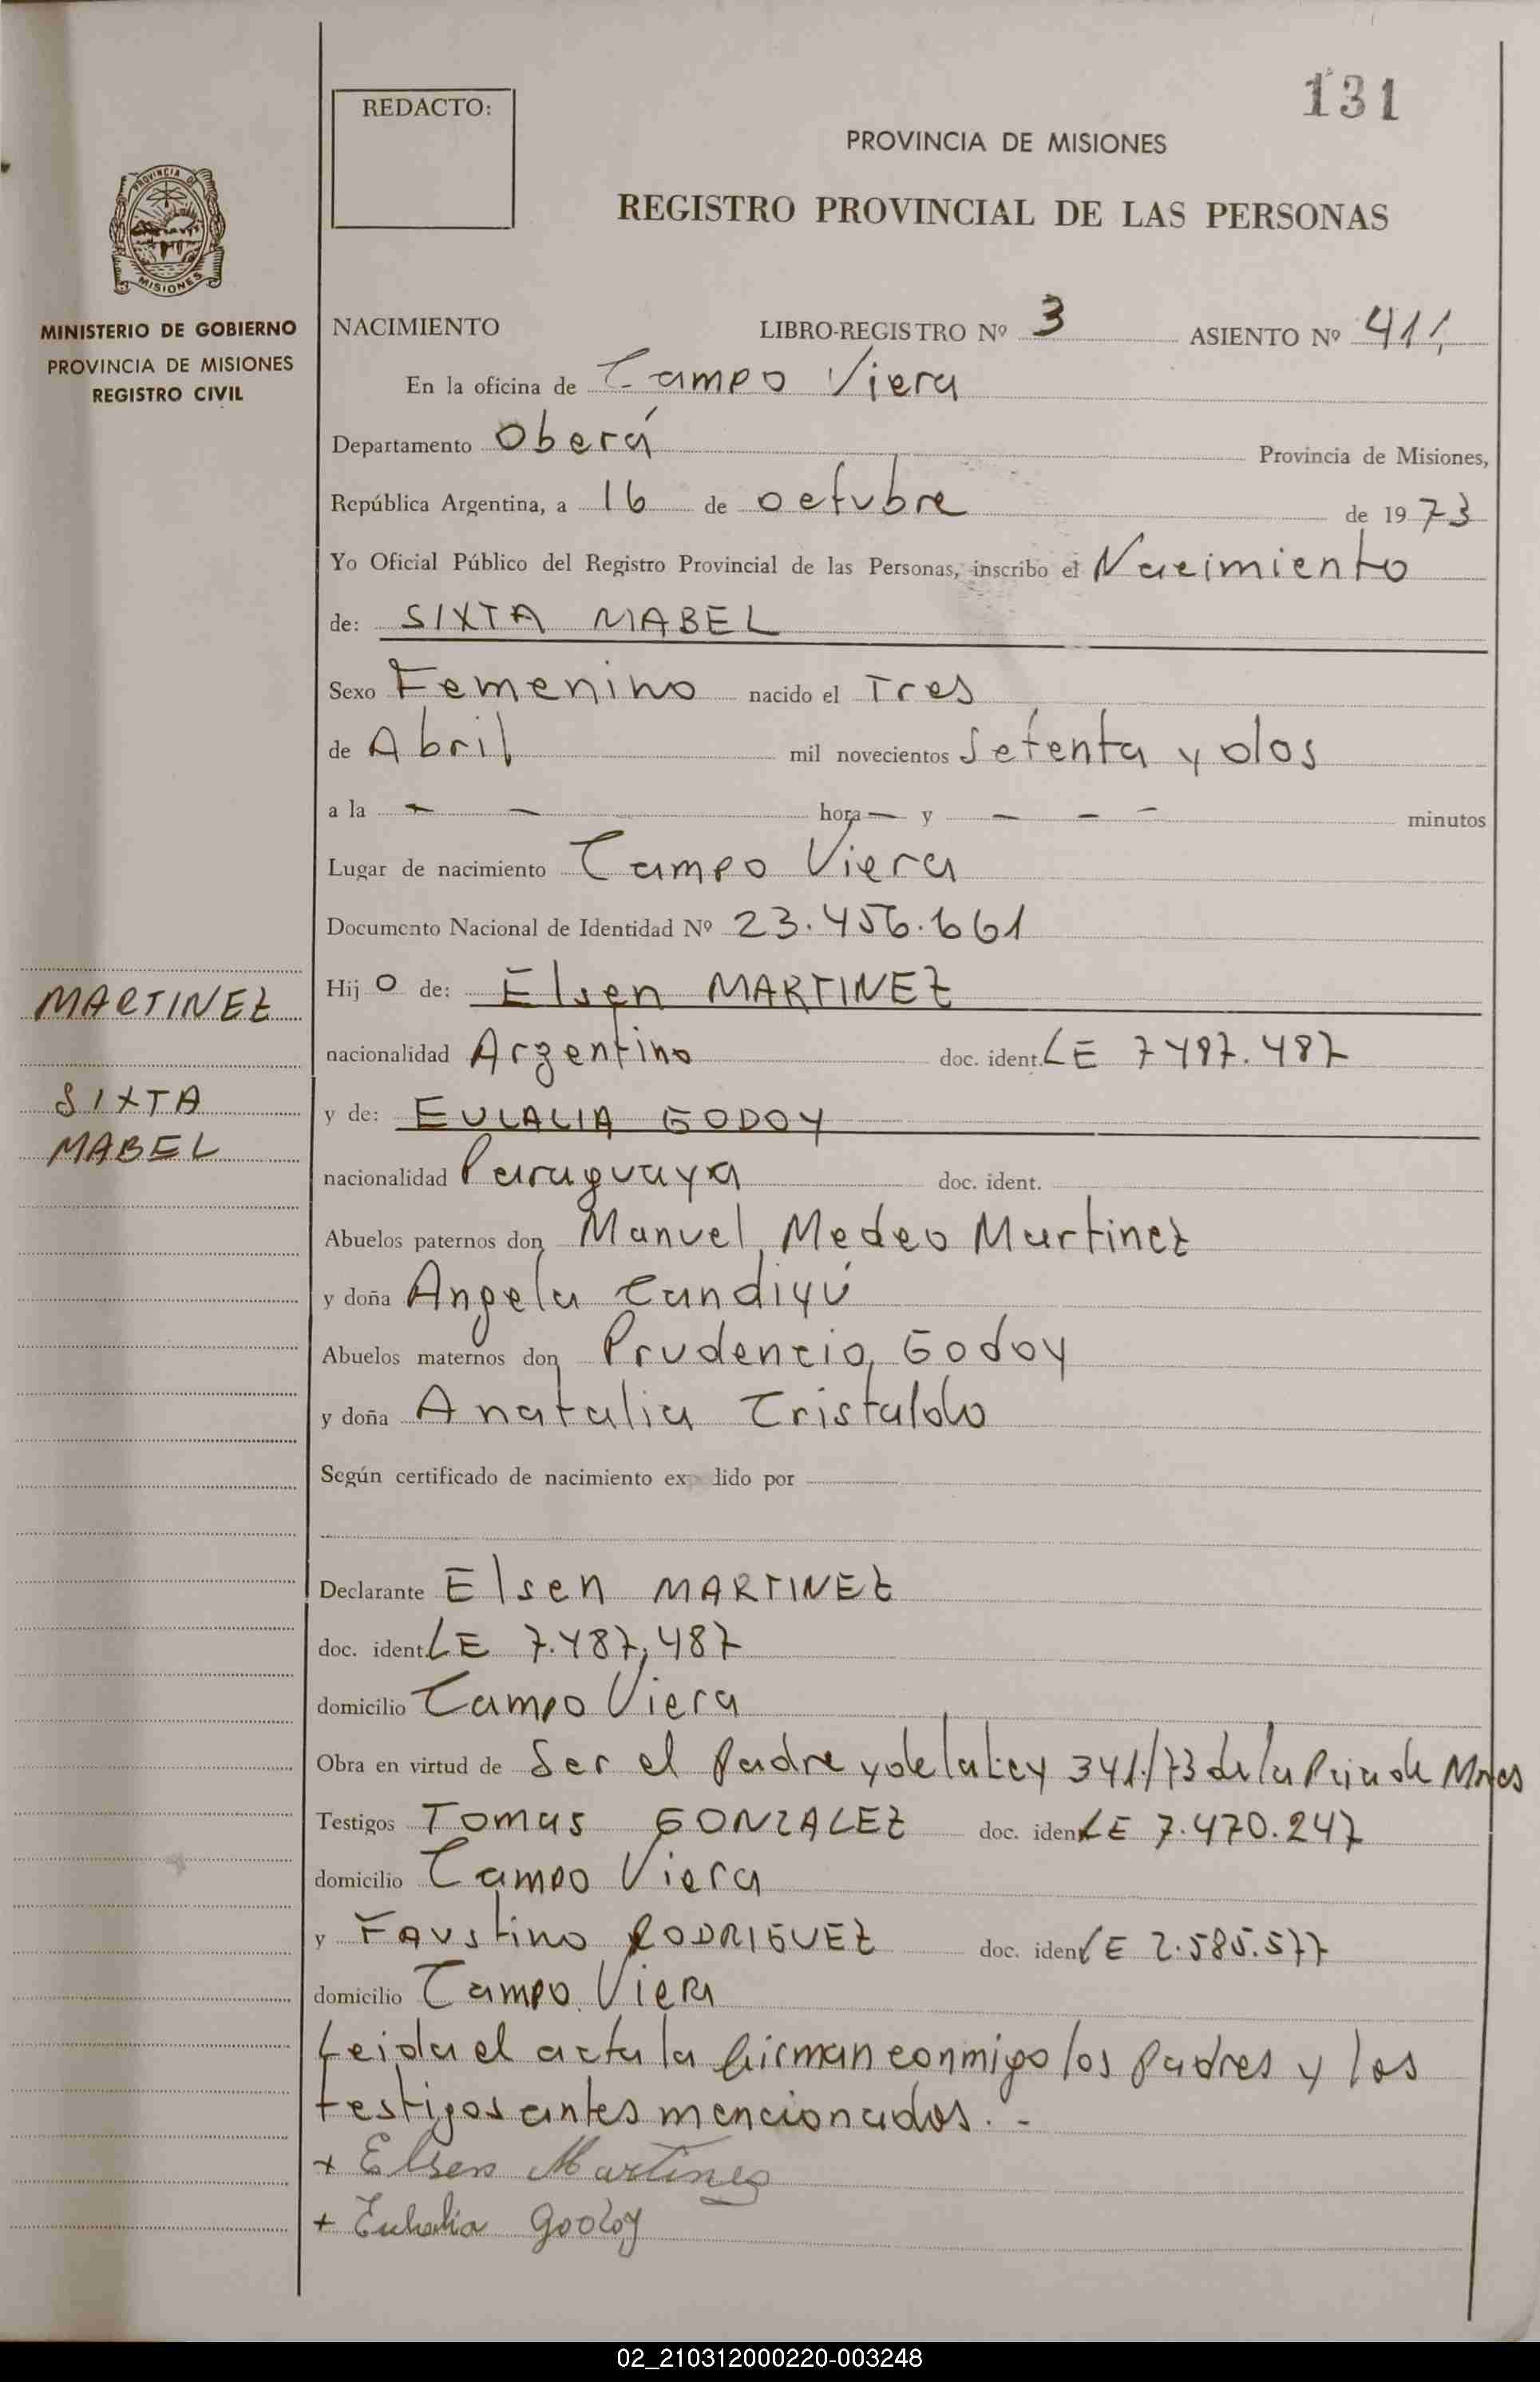 131
REDACTO:
PROVINCIA DE MISIONES
REGISTRO PROVINCIAL DE LAS PERSONAS
PROVINCIA DE
MISIONES
MINISTERIO DE GOBIERNO
PROVINCIA DE MISIONES
REGISTRO CIVIL
NACIMIENTO LIBRO-REGISTRO Nº 3 ASIENTO Nº 411
En la oficina de Campo Viera
Departamento Oberá Provincia de Misiones,
República Argentina, a 16 de octubre de 1973
Yo Oficial Público del Registro Provincial de las Personas, inscribo el Nacimiento
de: SIXTA MABEL
Sexo Femenino nacido el Tres
de Abril mil novecientos Setenta y dos
a la - - hora - y - - - minutos
Lugar de nacimiento Campo Viera
Documento Nacional de Identidad Nº 23.456.661
Hijo de: Elsen MARTINEZ
MARTINEZ
nacionalidad Argentino doc. ident. LE 7487.487
SIXTA
MABEL
y de: EULALIA GODOY
nacionalidad Paraguaya doc. ident.
Abuelos paternos don Manuel Medeo Martinez
y doña Angela Candiyú
Abuelos maternos don Prudencio Godoy
y doña Anatalia Cristaldo
Según certificado de nacimiento expedido por
Declarante Elsen MARTINEZ
doc. ident. LE 7.487,487
domicilio Campo Viera
Obra en virtud de Ser el Padre y de la Ley 341/73 de la Pcia de Mnes
Testigos Tomas GONZALEZ doc. ident LE 7.470.247
domicilio Campo Viera
y Faustino RODRIGUEZ doc. ident LE 2.585.577
domicilio Campo Viera
Leida el acta la firman conmigo los Padres y los
testigos antes mencionados. -
+ Elsen Martinez
+ Eulalia Godoy
02_210312000220-003248